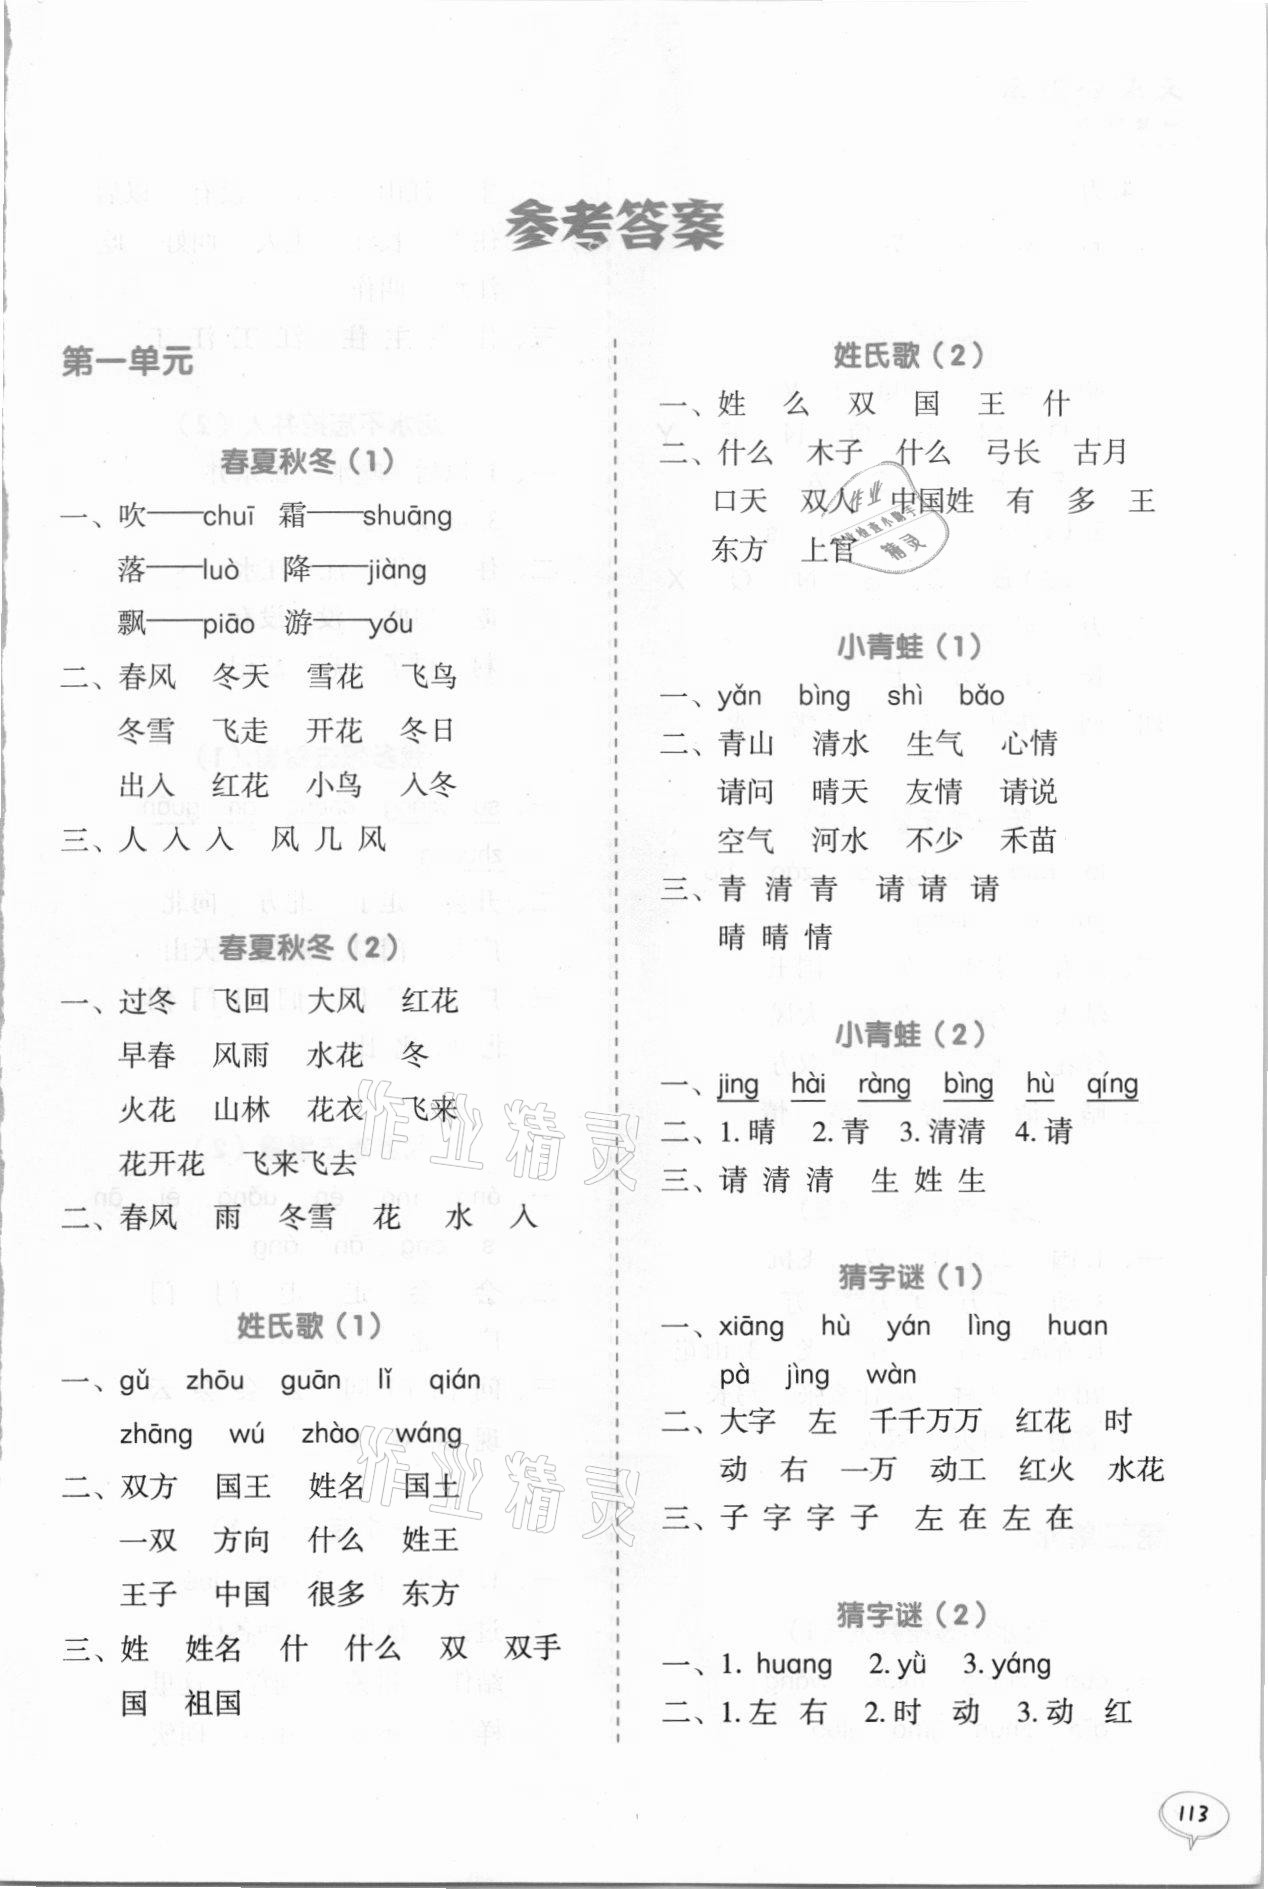 参考答案
第一单元
春夏秋冬（1）
一、吹——chuī 霜——shuāng
落——luò 降——jiàng
飘——piāo 游——yóu
二、春风 冬天 雪花 飞鸟
冬雪 飞走 开花 冬日
出入 红花 小鸟 入冬
三、人 入 入 风 几 风
春夏秋冬（2）
一、过冬 飞回 大风 红花
早春 风雨 水花 冬
火花 山林 花衣 飞来
花开花 飞来飞去
二、春风 雨 冬雪 花 水 入
姓氏歌（1）
一、gǔ zhōu guān lǐ qián
zhāng wú zhào wáng
二、双方 国王 姓名 国土
一双 方向 什么 姓王
王子 中国 很多 东方
三、姓 姓名 什 什么 双 双手
国 祖国
姓氏歌（2）
一、姓 么 双 国 王 什
二、什么 木子 什么 弓长 古月
口天 双人 中国姓 有 多 王
东方 上官
小青蛙（1）
一、yǎn bìng shì bǎo
二、青山 清水 生气 心情
请问 晴天 友情 请说
空气 河水 不少 禾苗
三、青 清 青 请 请 请
晴 晴 情
小青蛙（2）
一、jing hài ràng bìng hù qíng
二、1.晴 2.青 3.清清 4.请
三、请 清 清 生 姓 生
猜字谜（1）
一、xiāng hù yán lìng huan
pà jìng wàn
二、大字 左 千千万万 红花 时
动 右 一万 动工 红火 水花
三、子 字 字 子 左 在 左 在
猜字谜（2）
一、1. huang 2. yù 3. yáng
二、1.左 右 2.时 动 3.动 红
113
作业精灵
作业精灵
作业
检查小助手
精灵